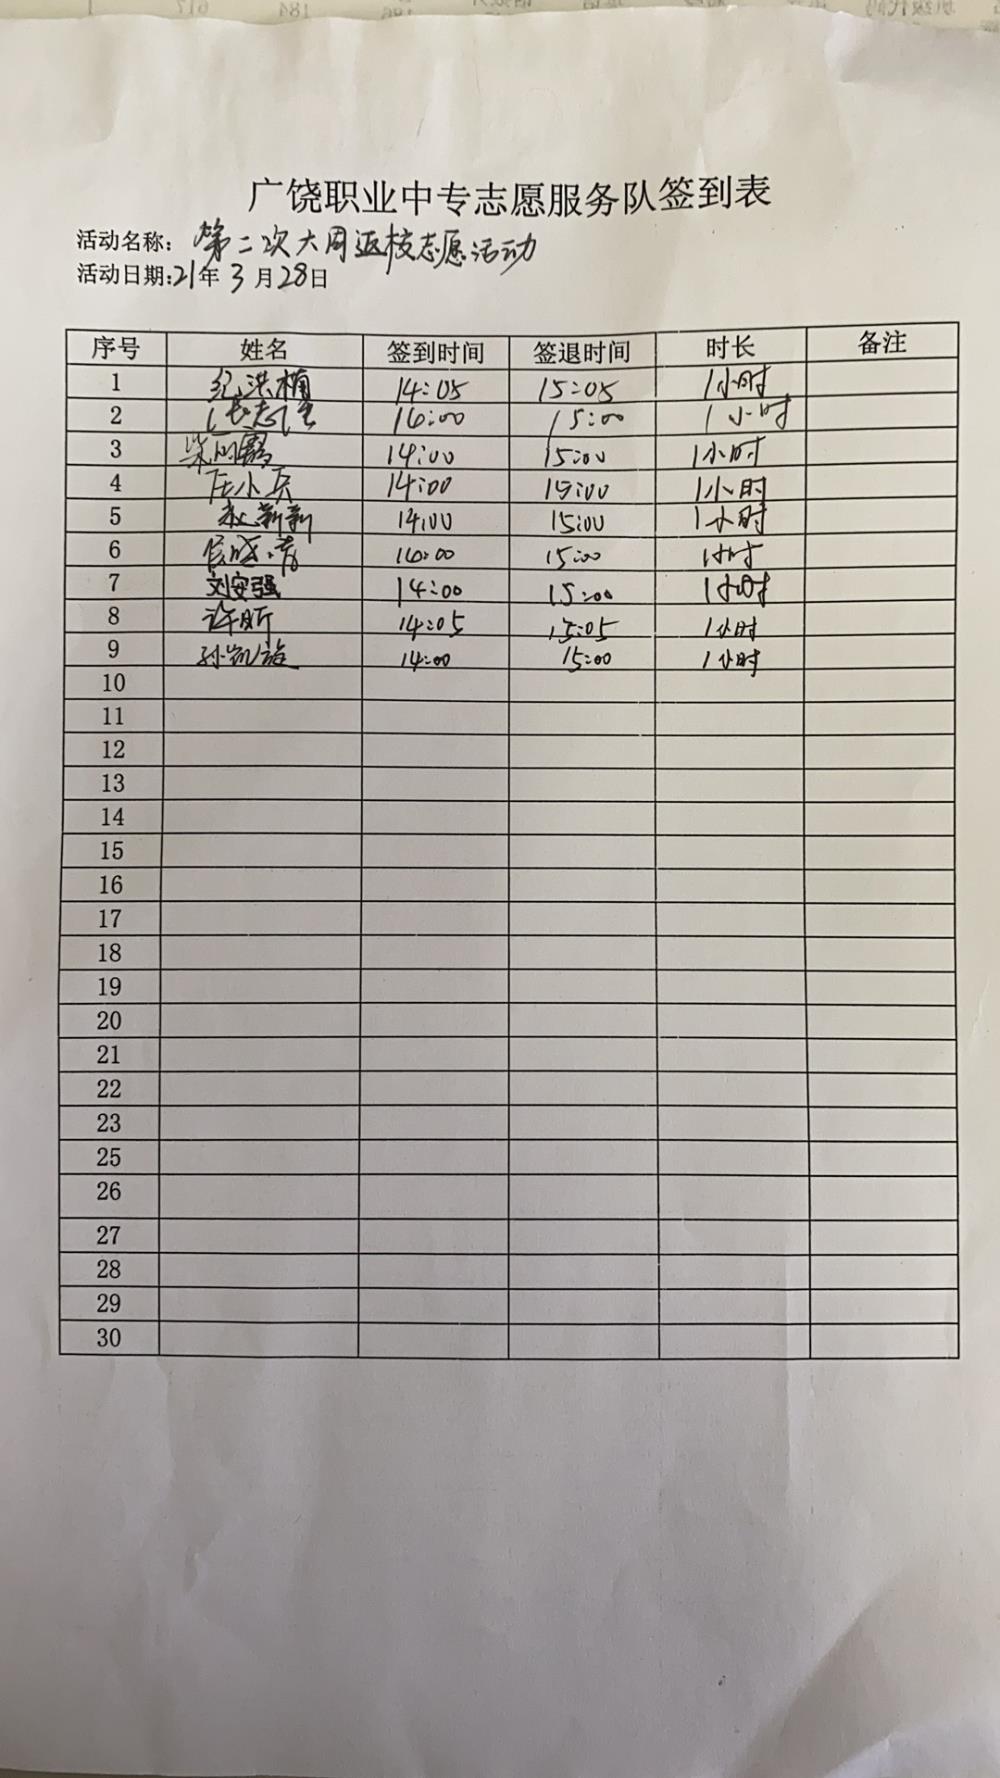 广饶职业中专志愿服务队签到表
活动名称: 第二次大周返校志愿活动
活动日期:21年 3月28日
序号 姓名 签到时间 签退时间 时长 备注
1 纪洪楠 14:05 15:05 1小时
2 14:00 15:00 1小时
3 14:00 15:00 1小时
4 14:00 15:00 1小时
5 14:00 15:00 1小时
6 14:00 15:00 1小时
7 刘安强 14:00 15:00 1小时
8 许昕 14:05 15:05 1小时
9 孙凯旋 14:00 15:00 1小时
10
11
12
13
14
15
16
17
18
19
20
21
22
23
25
26
27
28
29
30